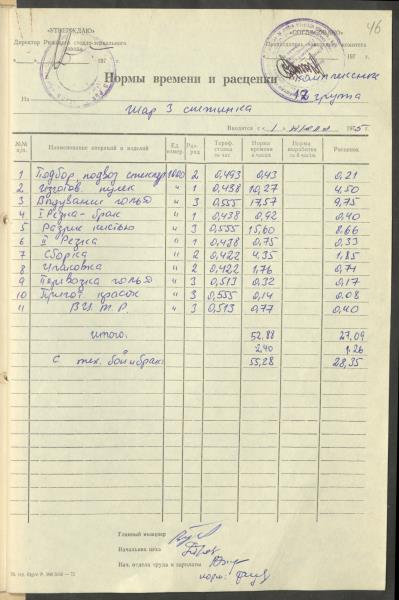 46
«УТВЕРЖДАЮ» «СОГЛАСОВАНО»
Директор Рижского стекло-зеркального завода Председатель заводского комитета
197 197
Нормы времени и расценки Комплексная
12 группа
На Шар 3 снежинка
Вводится с « 1 июля 1975 г.
№№ п.п. Наименование операций и изделий Ед. измер. Разряд Тариф. ставка за час Норма времени в часах Норма выработки за 8 часов Расценок
1 Подбор, подвоз стеклотр. 1000 2 0,493 0,43 0,21
2 Изготов пулек " 1 0,438 10,27 4,50
3 Выдувание гольё " 3 0,555 17,57 9,75
4 I Резка - брак " 1 0,438 0,92 0,40
5 Разрис кистью " 3 0,555 15,60 8,66
6 II Резка " 1 0,438 0,75 0,33
7 Сборка " 2 0,422 4,35 1,85
8 Упаковка " 2 0,422 1,76 0,74
9 Перевозка гольё " 3 0,513 0,32 0,17
10 Пригот красок " 3 0,555 0,14 0,08
11 " 3 0,513 0,77 0,40
Итого. 52,88 27,09
2,40 1,26
С тех. бой и брак 55,28 28,35
Главный инженер
Начальник цеха
Нач. отдела труда и зарплаты
норм.